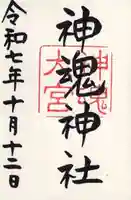 神魂神社
令和七年十月十二日
神魂
大宮